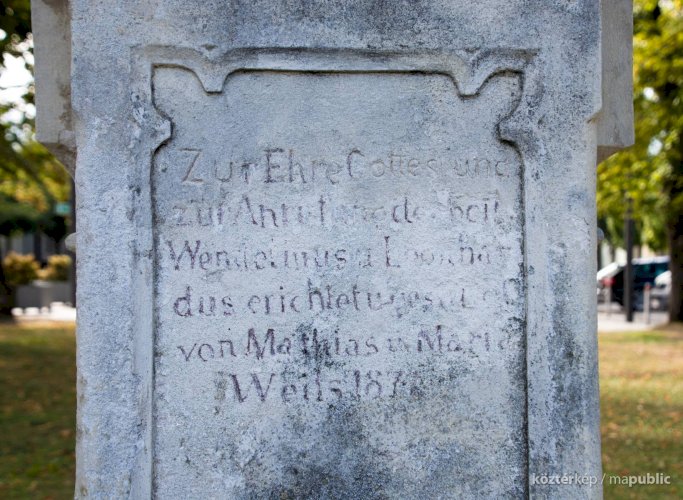 Zur Ehre Gottes und
zur Anrufung der heil.
Wendelinus u Leonhar
dus erichtet u
von Mathias u Maria
Weils
közterkép / mapublic